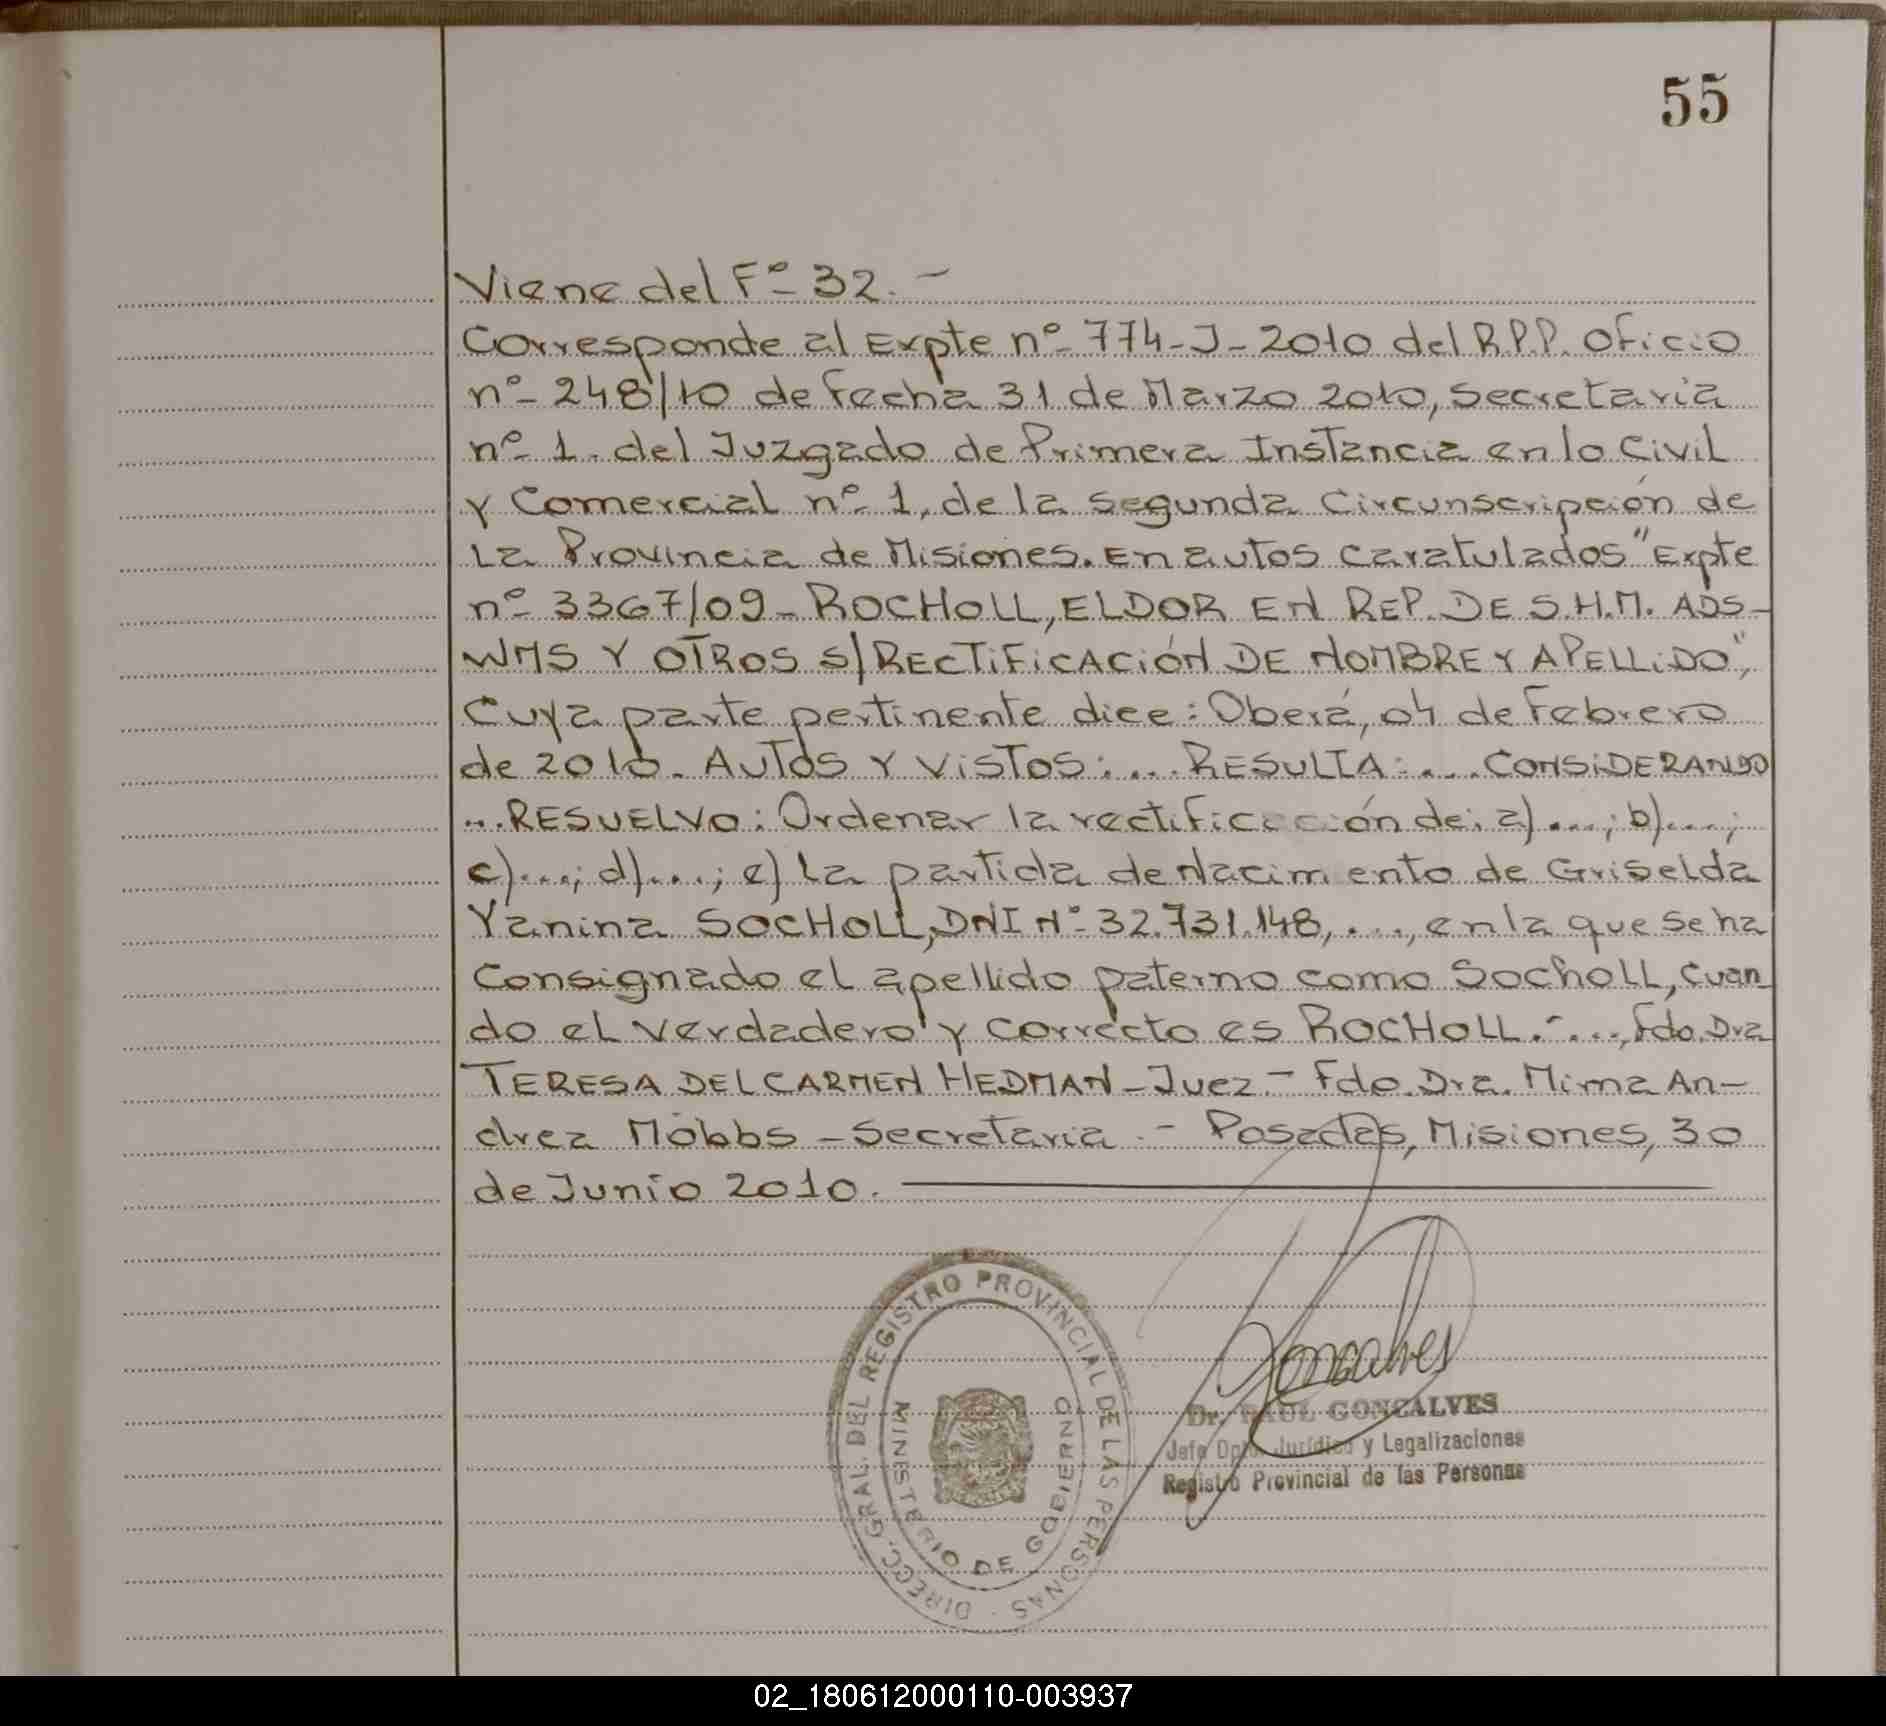 55
Viene del Fº 32.-
Corresponde al Expte nº 774-J-2010 del R.P.P. Oficio
nº 248/10 de fecha 31 de Marzo 2010, Secretaria
nº 1. del Juzgado de Primera Instancia en lo Civil
y Comercial nº 1, de la segunda Circunscripción de
La Provincia de Misiones. En autos caratulados "Expte
nº 3367/09-ROCHOLL, ELDOR EN REP. DE S.H.M. ADS-
WMS Y OTROS S/RECTIFICACIÓN DE NOMBRE Y APELLIDO",
Cuya parte pertinente dice: Oberá, 04 de Febrero
de 2010. AUTOS Y VISTOS:... RESULTA:.... CONSIDERANDO
...RESUELVO: Ordenar la rectificación de: a)....; b)....;
c)....; d)....; e) La partida de Nacimiento de Griselda
Yanina SOCHOLL, DNI Nº 32.731.148, ...., en la que se ha
Consignado el apellido paterno como Socholl, cuan-
do el verdadero y correcto es ROCHOLL.-...., Fdo. Dra
TERESA DEL CARMEN HEDMAN-Juez.- Fdo. Dra. Mirna An-
drea Möbbs-Secretaria.- Posadas, Misiones, 30
de Junio 2010.
DIRECC. GRAL. DEL REGISTRO PROVINCIAL DE LAS PERSONAS ·
MINISTERIO DE GOBIERNO
Goncalves
Dr. RAUL GONCALVES
Jefe Dpto. Jurídico y Legalizaciones
Registro Provincial de las Personas
02_180612000110-003937